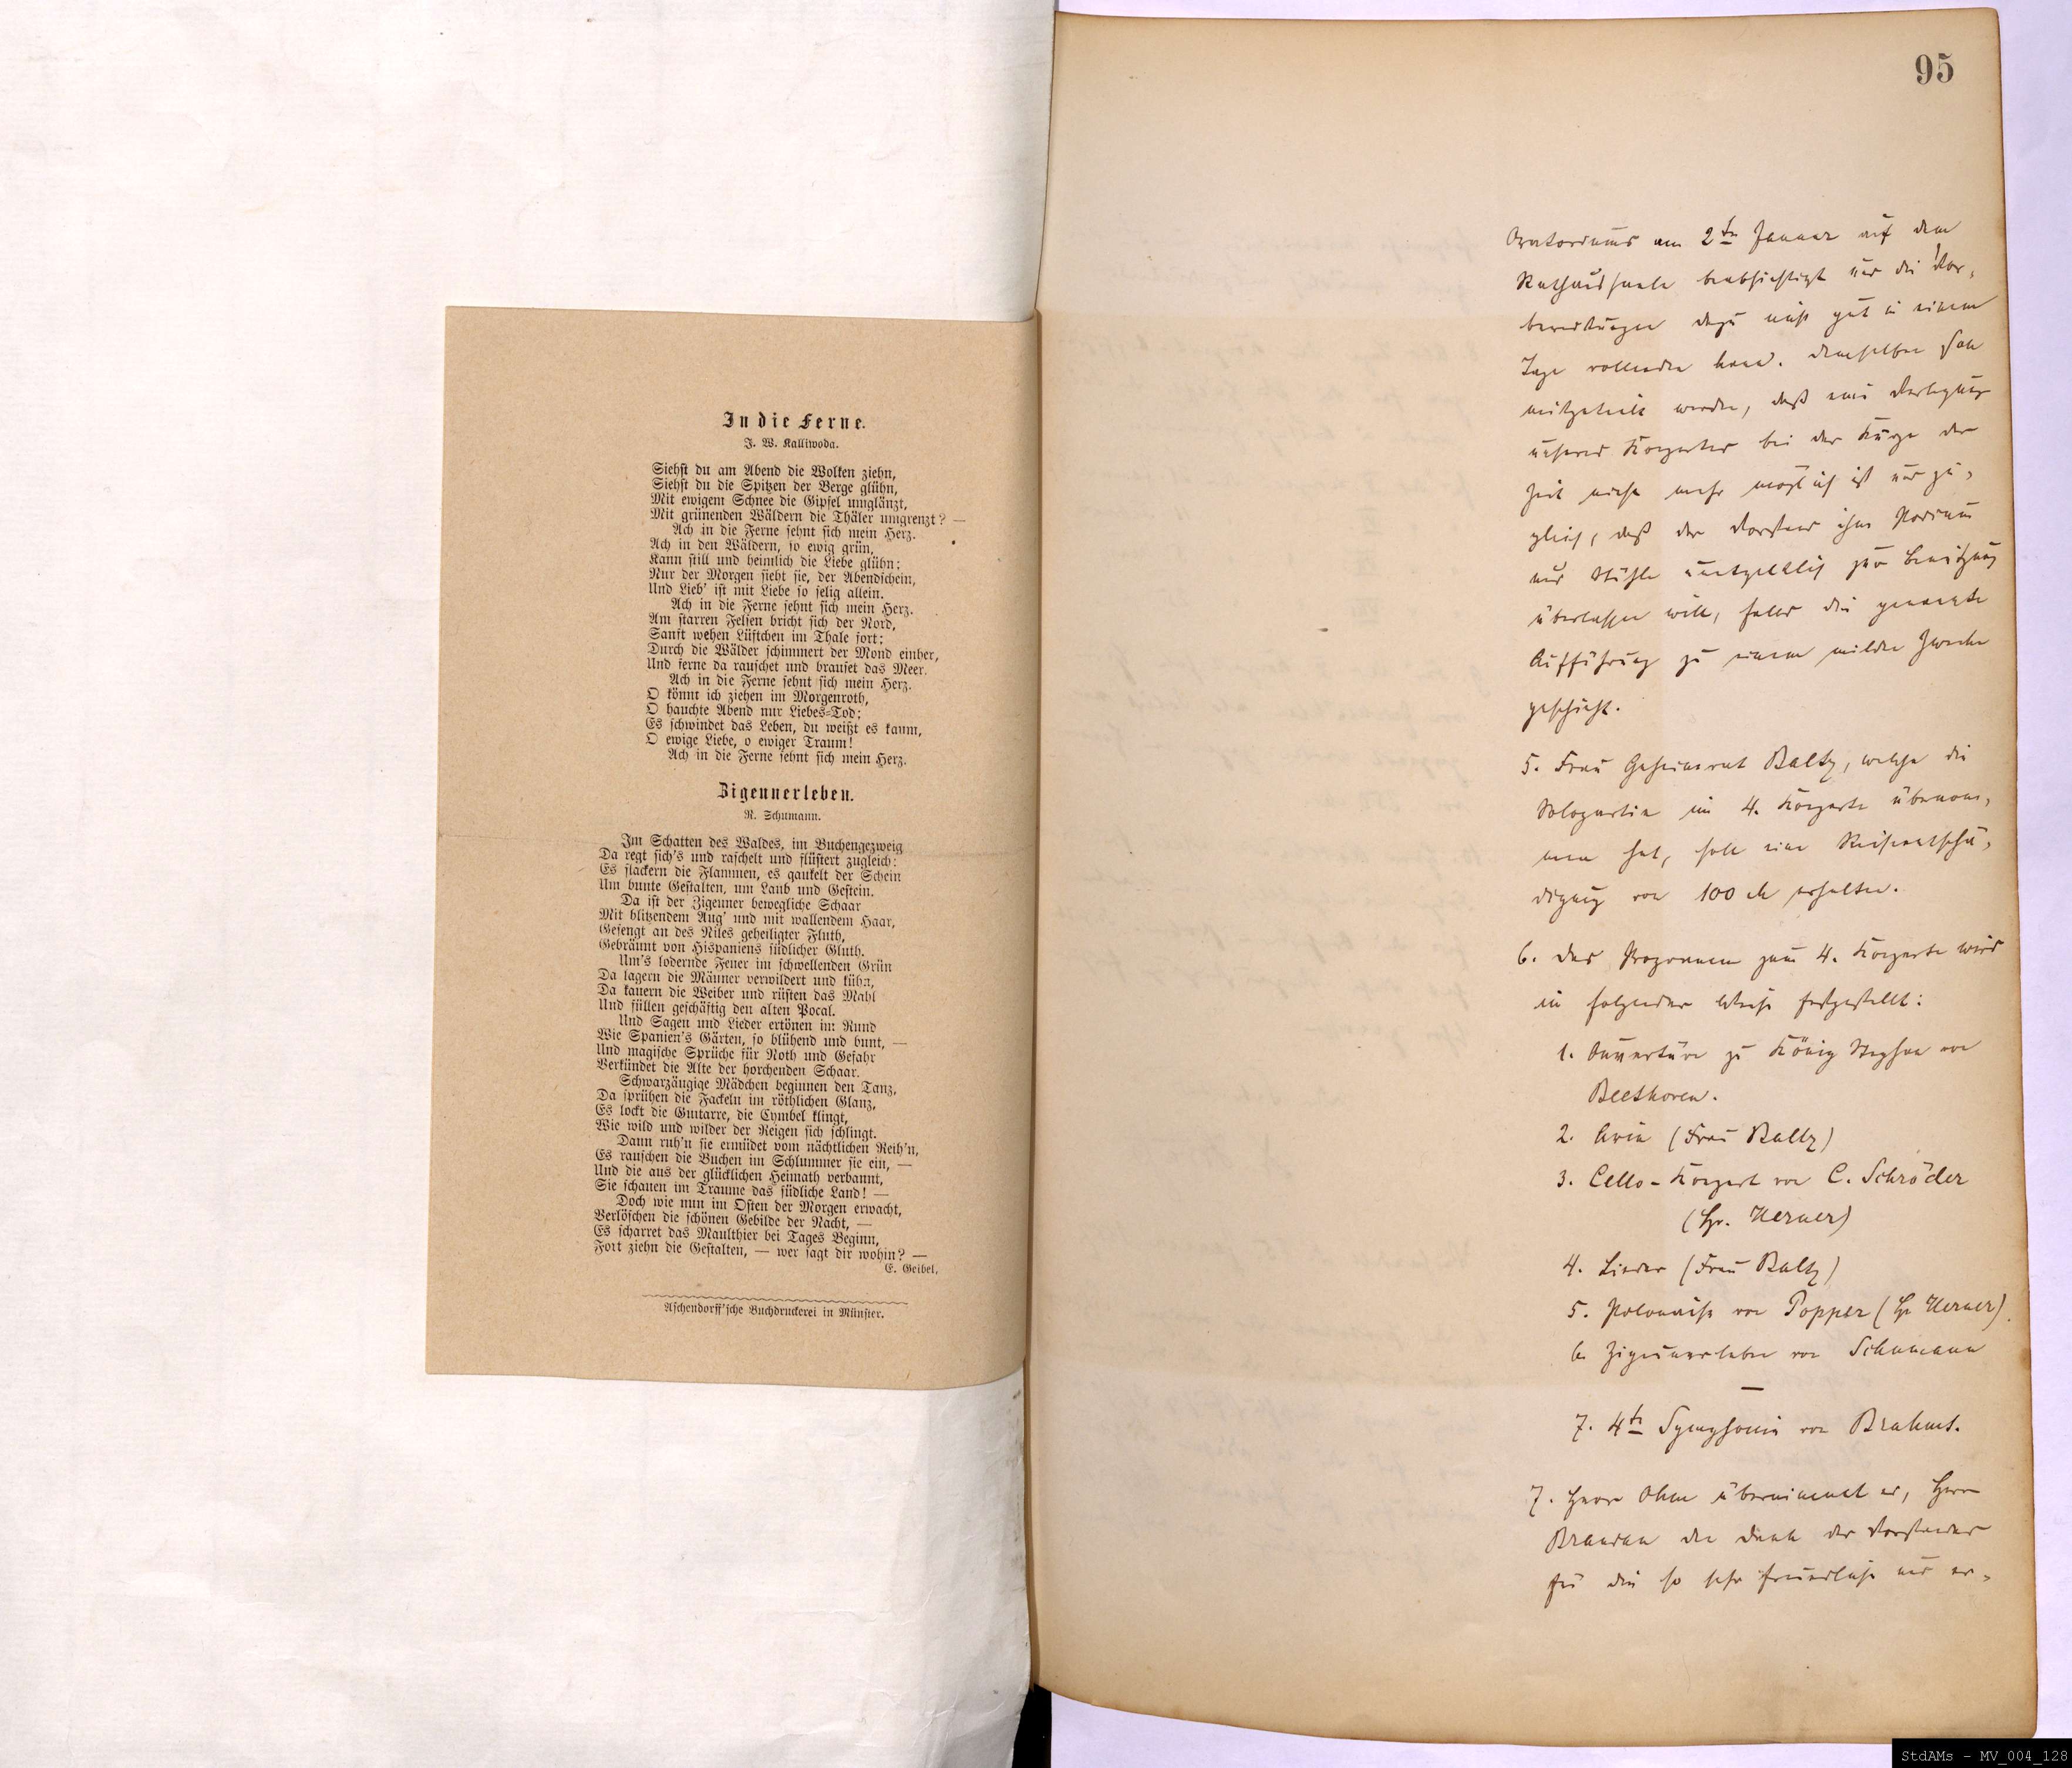 In die Ferne.
J. W. Kalliwoda.
Siehst du am Abend die Wolken ziehn,
Siehst du die Spitzen der Berge glühn,
Mit ewigem Schnee die Gipfel umglänzt,
Mit grünenden Wäldern die Thäler umgrenzt? —
Ach in die Ferne sehnt sich mein Herz.
Ach in den Wäldern, so ewig grün,
Kann still und heimlich die Liebe glühn;
Nur der Morgen sieht sie, der Abendschein,
Und Lieb' ist mit Liebe so selig allein.
Ach in die Ferne sehnt sich mein Herz.
Am starren Felsen bricht sich der Nord,
Sanft wehen Lüftchen im Thale fort;
Durch die Wälder schimmert der Mond einher,
Und ferne da rauschet und brauset das Meer.
Ach in die Ferne sehnt sich mein Herz.
O könnt ich ziehen im Morgenroth,
O hauchte Abend nur Liebes-Tod;
Es schwindet das Leben, du weißt es kaum,
O ewige Liebe, o ewiger Traum!
Ach in die Ferne sehnt sich mein Herz.
Zigeunerleben.
R. Schumann.
Im Schatten des Waldes, im Buchengezweig
Da regt sich's und raschelt und flüstert zugleich;
Es flackern die Flammen, es gaukelt der Schein
Um bunte Gestalten, um Laub und Gestein.
Da ist der Zigeuner bewegliche Schaar
Mit blitzendem Aug' und mit wallendem Haar,
Gesengt an des Niles geheiligter Fluth,
Gebräunt von Hispaniens südlicher Gluth.
Um's lodernde Feuer im schwellenden Grün
Da lagern die Männer verwildert und kühn,
Da kauern die Weiber und rüsten das Mahl
Und füllen geschäftig den alten Pocal.
Und Sagen und Lieder ertönen im Rund
Wie Spanien's Gärten, so blühend und bunt, —
Und magische Sprüche für Noth und Gefahr
Verkündet die Alte der horchenden Schaar.
Schwarzäugige Mädchen beginnen den Tanz,
Da sprühen die Fackeln im röthlichen Glanz,
Es lockt die Guitarre, die Cymbel klingt,
Wie wild und wilder der Reigen sich schlingt.
Dann ruh'n sie ermüdet vom nächtlichen Reih'n,
Es rauschen die Buchen im Schlummer sie ein, —
Und die aus der glücklichen Heimath verbannt,
Sie schauen im Traume das südliche Land! —
Doch wie nun im Osten der Morgen erwacht,
Verlöschen die schönen Gebilde der Nacht, —
Es scharret das Maulthier bei Tages Beginn,
Fort ziehn die Gestalten, — wer sagt dir wohin? —
E. Geibel.
Aschendorff'sche Buchdruckerei in Münster.
95
Oratoriums am 2ten Januar auf dem
Rathaussaale beabsichtigt und die Vor-
bereitungen dazu nicht gut in einem
Tage vollenden kann. Demselben soll
mitgeteilt werden, daß eine Verlegung
unseres Konzertes bei der Kürze der
Zeit nicht mehr möglich ist und zu-
gleich, daß der Vorstand ihm Podium
und Stühle unentgeltlich zur Benutzung
überlassen will, falls die genannte
Aufführung zu einem milden Zwecke
geschieht.
5. Frau Geheimrat Baltz, welche die
Solopartie im 4. Konzerte übernom-
men hat, soll eine Reiseentschä-
digung von 100 M erhalten.
6. Das Programm zum 4. Konzerte wird
in folgender Weise festgestellt:
1. Ouvertüre zu König Stephan von
Beethoven.
2. Arie (Frau Baltz)
3. Cello-Konzert von C. Schröder
(Hr. Werner)
4. Lieder (Frau Baltz)
5. Polonaise von Popper (Hr Werner).
6. Zigeunerleben von Schumann
—
7. 4te Symphonie von Brahms.
7. Herr Ohm übernimmt es, Herrn
den Dank des Vorstandes
für die so sehr freundliche und er-
StdAMs - MV_004_128